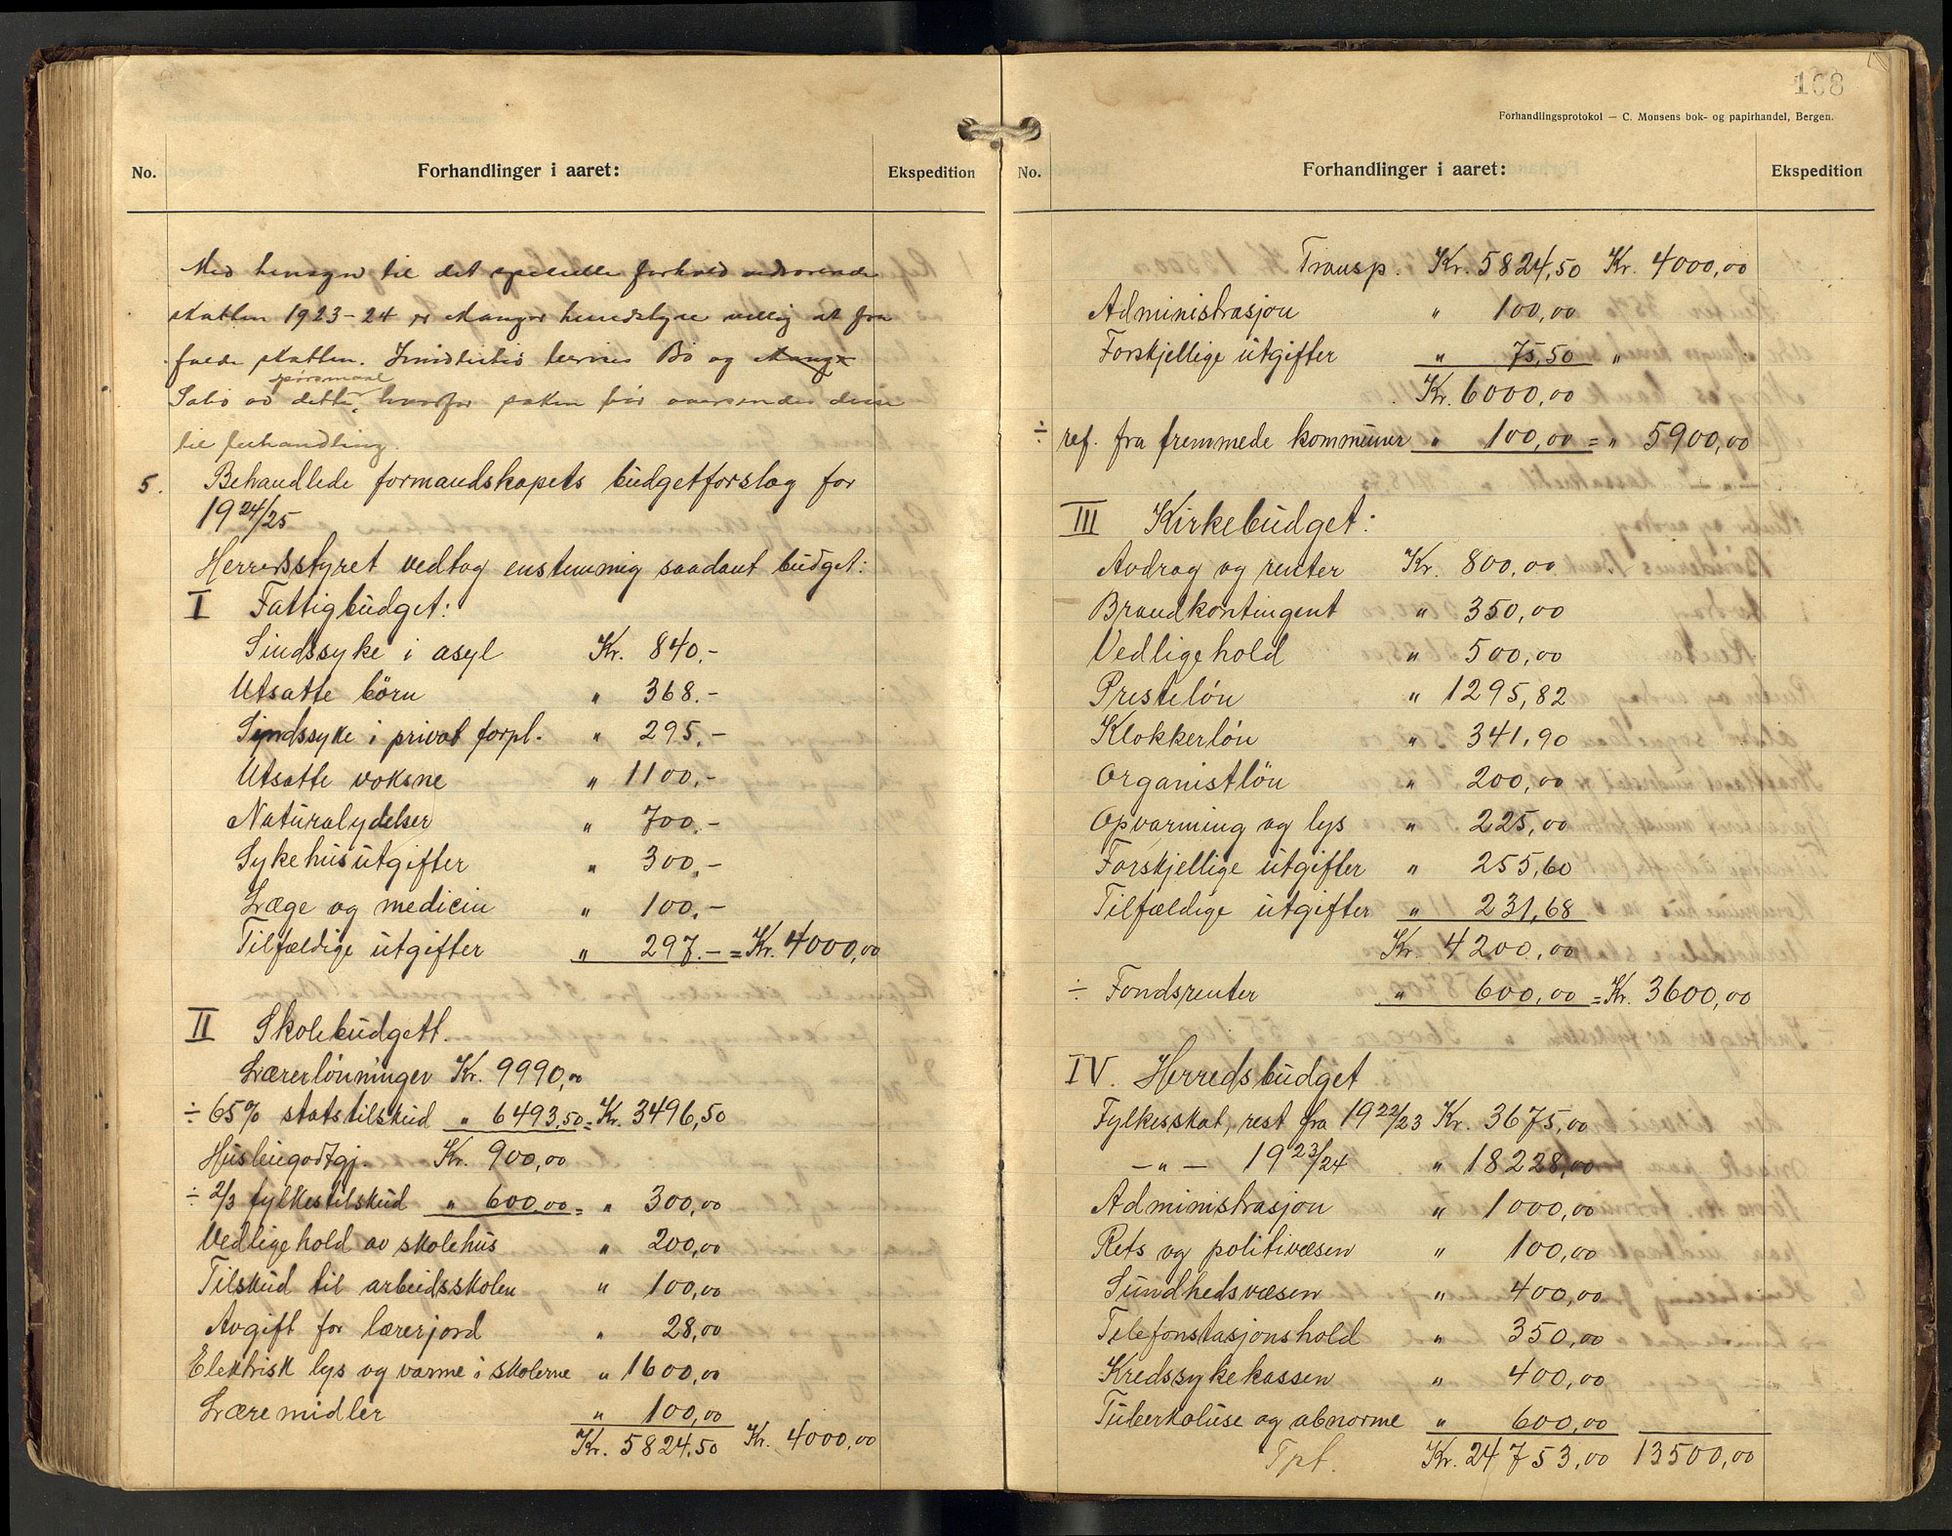 No.
Forhandlinger i aaret:
Ekspedition
Med hensyn til det specielle forhold vedrørende
skatten 1923-24 er Manger herredstyre villig at fra
falde skatten. Imidlertid Bø og
Sæbø av dette spørsmaal, hvorfor saken bør oversendes disse
til forhandling.
5. Behandlede formandskapets budgetforslag for
1924/25
Herredsstyret vedtog enstemmig saadant budget:
I Fattigbudget:
Sindssyke i asyl Kr. 840.-
Utsatte børn " 368.-
Syndssyke i privat forpl. " 295.-
Utsatte voksne " 1100.-
Naturalydelser " 700.-
Sykehusutgifter " 300.-
Læge og medicin " 100.-
Tilfældige utgifter " 297.- = Kr. 4000,00
II Skolebudgett.
Lærerlønninger Kr. 9990,00
÷ 65% statstilskud " 6493,50 = Kr. 3496,50
Husleigodtgj. Kr. 900,00
÷ 2/3 fylkestilskud " 600,00 = " 300,00
Vedligehold av skolehus " 200,00
Tilskud til arbeidsskolen " 100,00
Avgift for lærerjord " 28,00
Elektrisk lys og varme i skolerne " 1600,00
Læremidler " 100,00
Kr. 5824,50 Kr. 4000,00
168
Forhandlingsprotokol — C. Monsens bok- og papirhandel, Bergen.
No.
Forhandlinger i aaret:
Ekspedition
Transp. Kr. 5824,50 Kr. 4000,00
Administrasjon " 100,00
Forskjellige utgifter " 75,50 "
Kr. 6000,00
÷ ref. fra fremmede kommuner " 100,00 = " 5900,00
III Kirkebudget:
Avdrag og renter Kr. 800,00
Brandkontingent " 350,00
Vedligehold " 500,00
Presteløn " 1295,82
Klokkerløn " 341,90
Organistløn " 200,00
Opvarming og lys " 225,00
Forskjellige utgifter " 255,60
Tilfældige utgifter " 231,68
Kr. 4200,00
÷ Fondsrenter " 600,00 = Kr. 3600,00
IV. Herredsbudget
Fylkesskat, rest fra 1922/23 Kr. 3675,00
-"- 1923/24 " 18228,00
Administrasjon " 1000,00
Rets og politivæsen " 100,00
Sundhedsvæsen " 400,00
Telefonstasjonshold " 350,00
Kredssykekassen " 400,00
Tuberkoluse og abnorme " 600,00
Tpt. Kr. 24753,00 13500,00